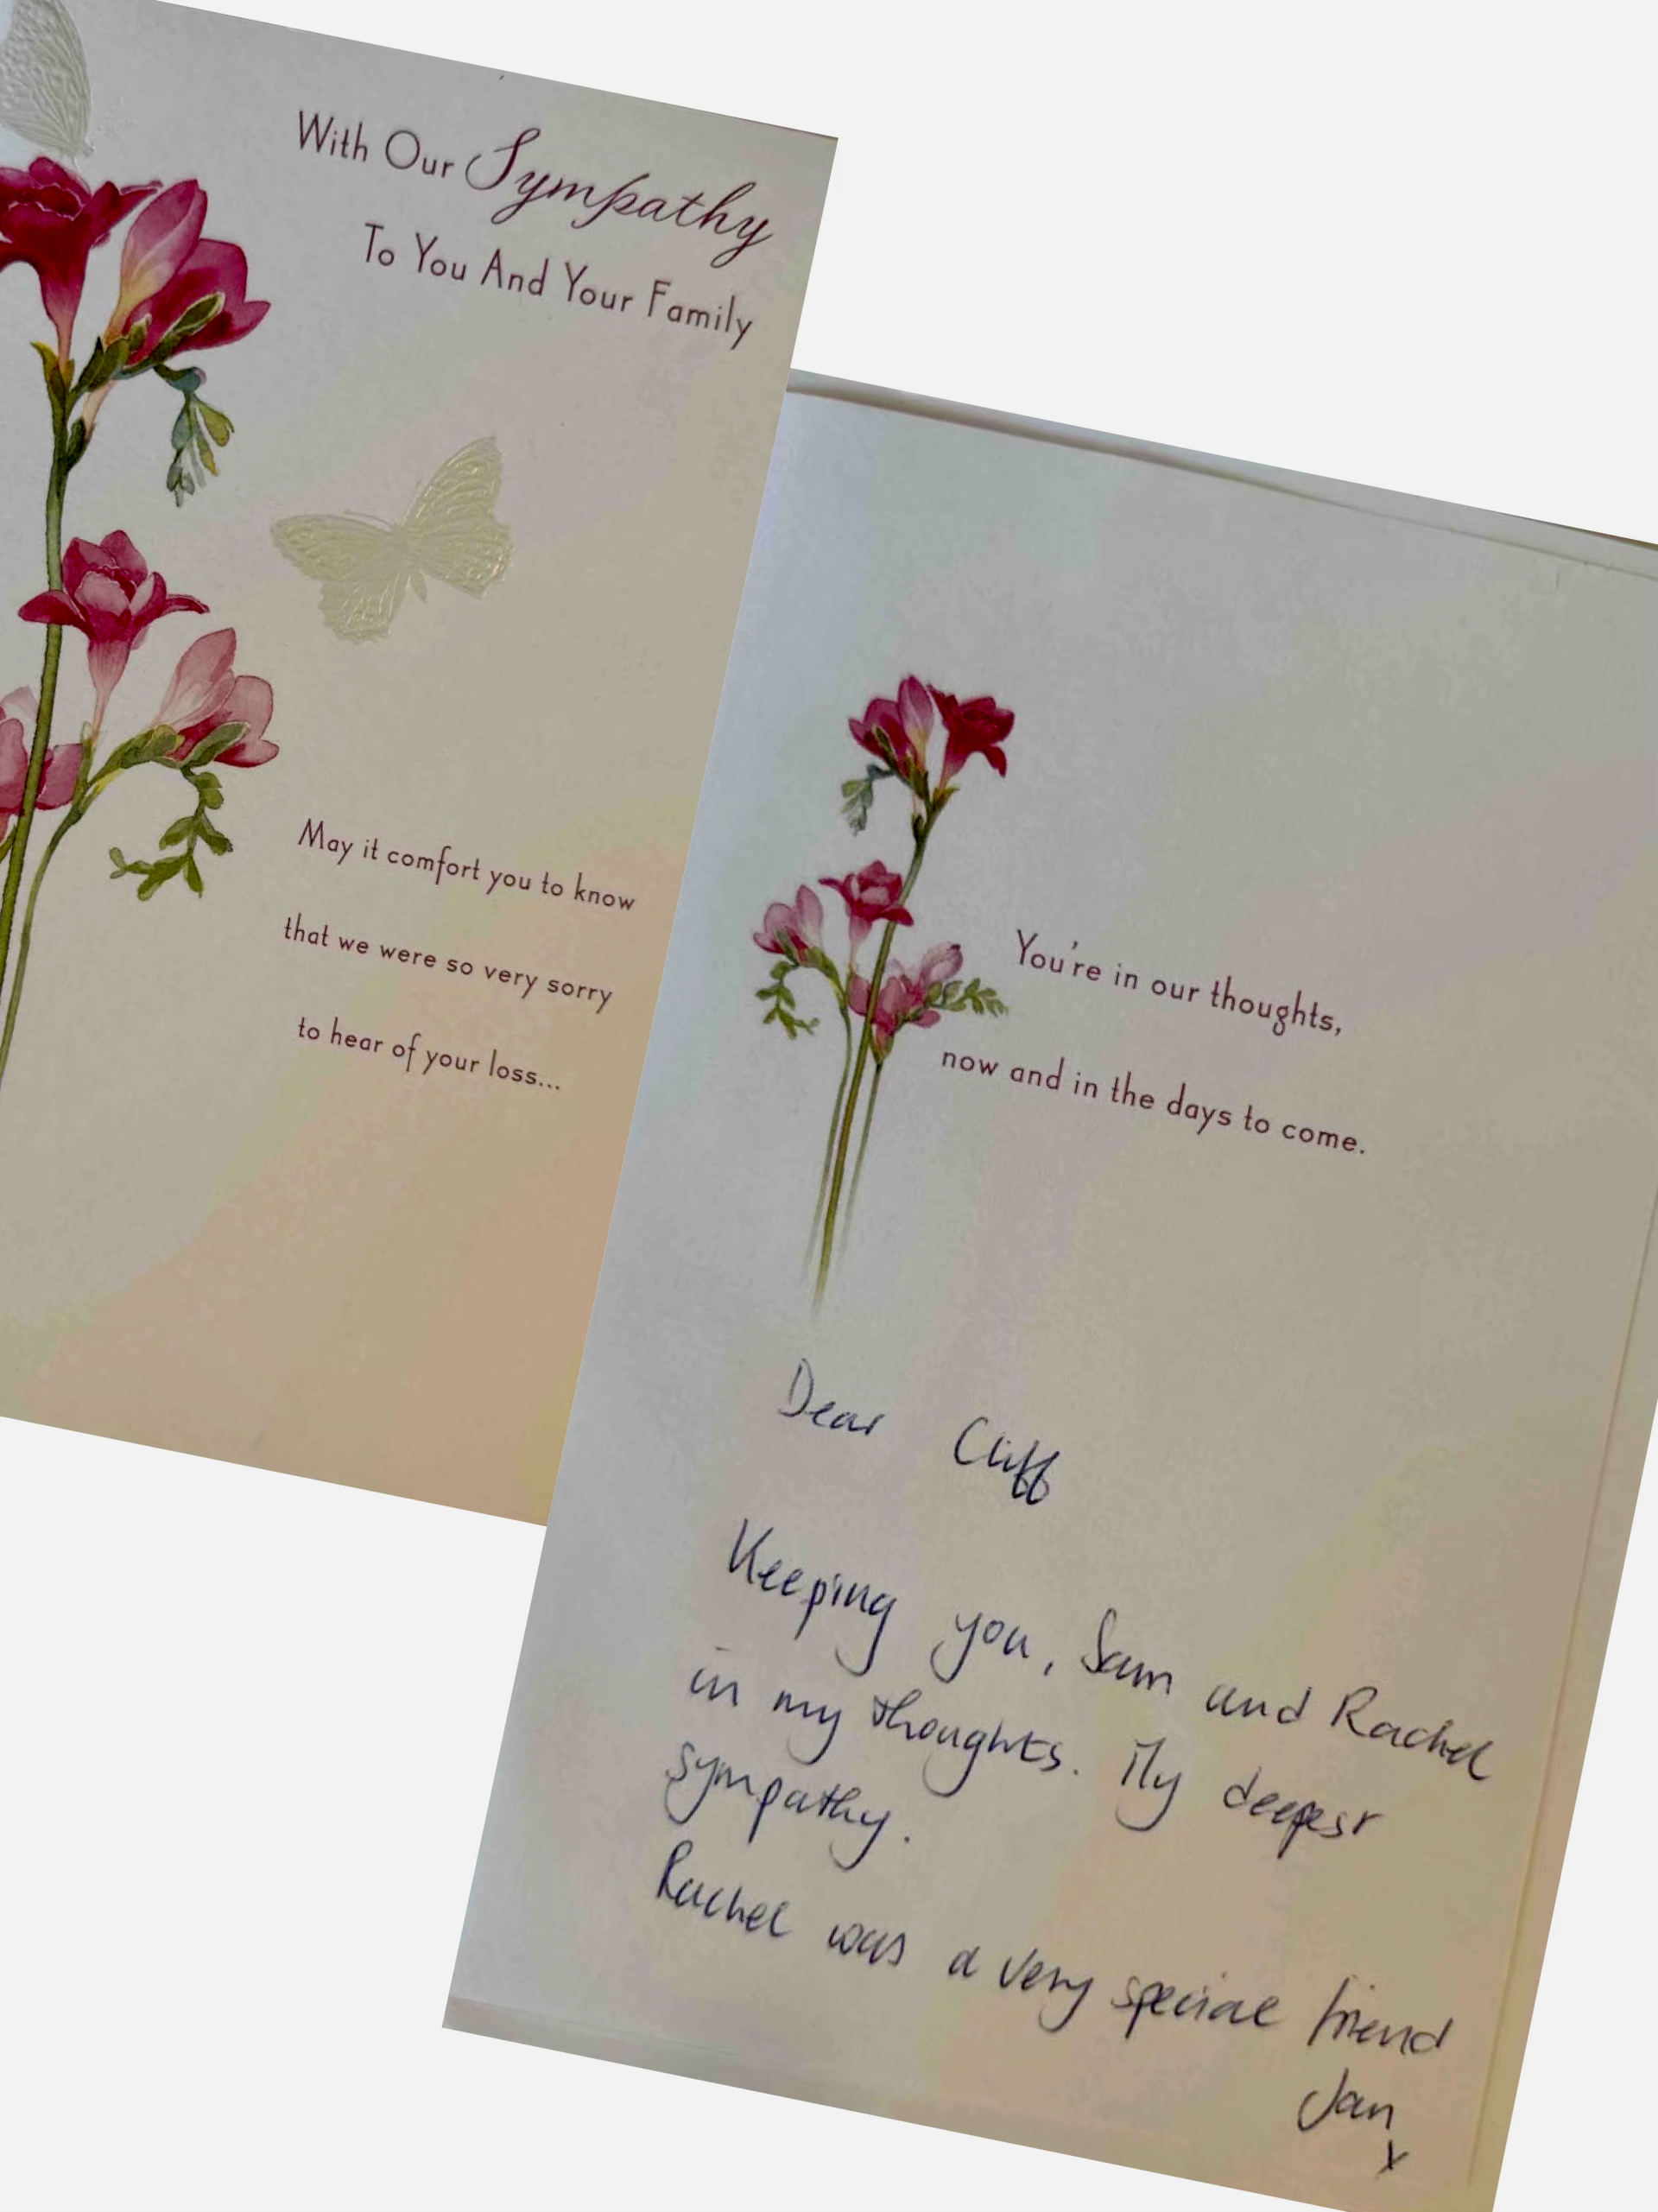 With Our Sympathy
To You And Your Family
May it comfort you to know
that we were so very sorry
to hear of your loss...
You're in our thoughts,
now and in the days to come.
Dear Cliff
Keeping you, Sam and Rachel
in my thoughts. My deepest
sympathy.
Rachel was a very special friend
Jan
x